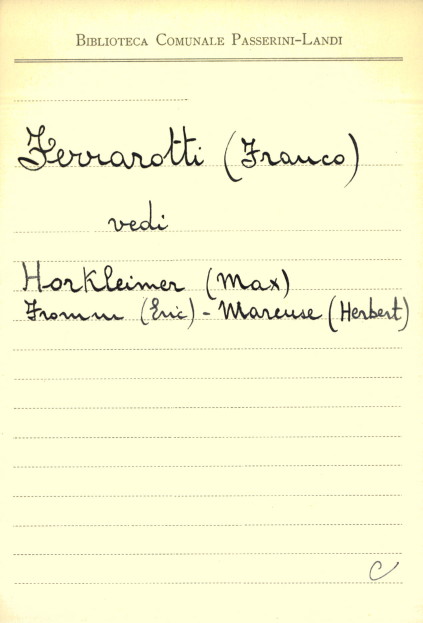 Biblioteca Comunale Passerini-Landi
Ferrarotti (Franco)
vedi
Horkleimer (Max)
Fromm (Eric) - Marcuse (Herbert)
C